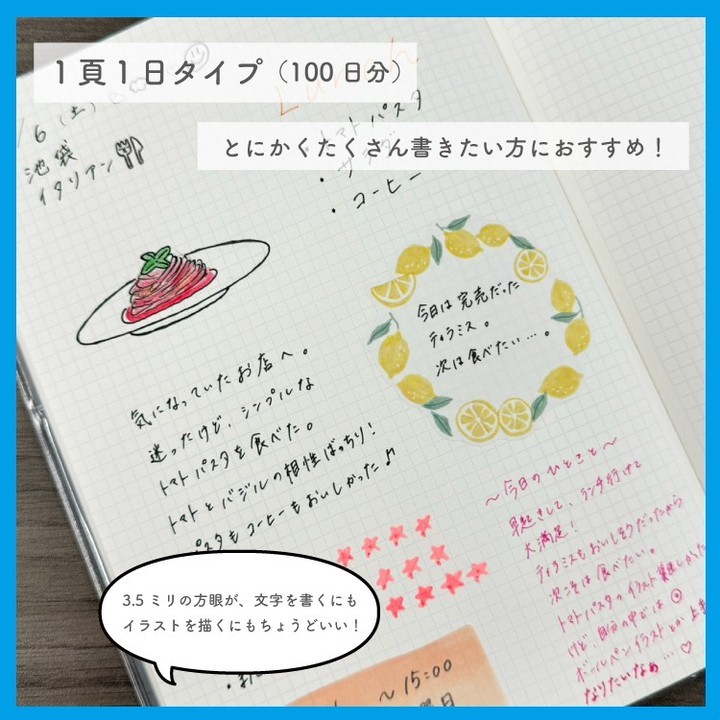 1頁1日タイプ（100日分）
とにかくたくさん書きたい方におすすめ！
6（土）
池袋
イタリアン
Lunch
トマトパスタ
サラダ
・コーヒー
今日は完売だった
ティラミス。
次は食べたい…。
気になっていたお店へ。
迷ったけど、シンプルな
トマトパスタを食べた。
トマトとバジルの相性ばっちり！
パスタもコーヒーもおいしかった♪
〜今日のひとこと〜
早起きして、ランチ行けて
大満足！
ティラミスもおいしそうだったから
次こそは食べたい。
トマトパスタのイラスト
けど、自分の中では
ボールペンイラストとか上手
なりたいなぁ…♡
3.5ミリの方眼が、文字を書くにも
イラストを描くにもちょうどいい！
〜15:00
曜日